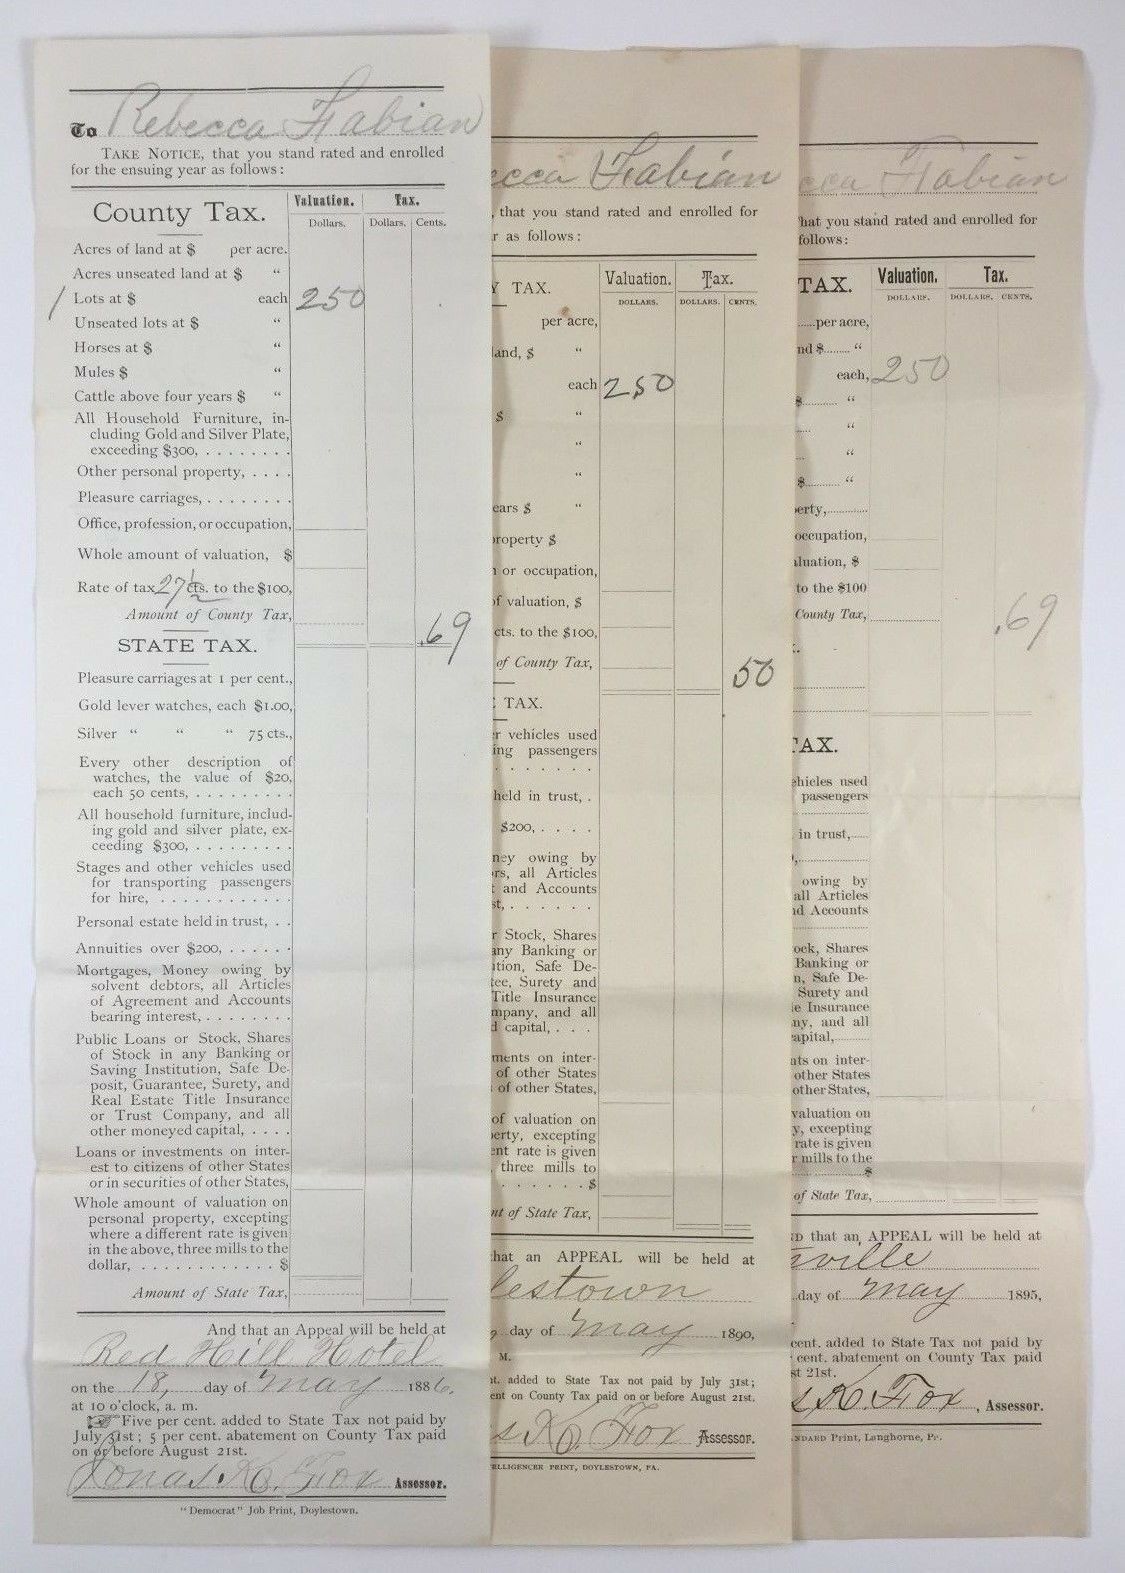 To Rebecca Fabian
TAKE NOTICE, that you stand rated and enrolled
for the ensuing year as follows:
County Tax.
Valuation. Tax.
Dollars. Dollars. Cents.
Acres of land at $ per acre.
Acres unseated land at $ "
1 Lots at $ each 250
Unseated lots at $ "
Horses at $ "
Mules $ "
Cattle above four years $ "
All Household Furniture, in-
cluding Gold and Silver Plate,
exceeding $300,
Other personal property,
Pleasure carriages,
Office, profession, or occupation,
Whole amount of valuation, $
Rate of tax 27½ cts. to the $100,
Amount of County Tax, .69
STATE TAX.
Pleasure carriages at 1 per cent.,
Gold lever watches, each $1.00,
Silver " " " 75 cts.,
Every other description of
watches, the value of $20,
each 50 cents,
All household furniture, includ-
ing gold and silver plate, ex-
ceeding $300,
Stages and other vehicles used
for transporting passengers
for hire,
Personal estate held in trust,
Annuities over $200,
Mortgages, Money owing by
solvent debtors, all Articles
of Agreement and Accounts
bearing interest,
Public Loans or Stock, Shares
of Stock in any Banking or
Saving Institution, Safe De-
posit, Guarantee, Surety, and
Real Estate Title Insurance
or Trust Company, and all
other moneyed capital,
Loans or investments on inter-
est to citizens of other States
or in securities of other States,
Whole amount of valuation on
personal property, excepting
where a different rate is given
in the above, three mills to the
dollar, $
Amount of State Tax,
And that an Appeal will be held at
Red Hill Hotel
on the 18, day of May 1886.
at 10 o'clock, a. m.
☞ Five per cent. added to State Tax not paid by
July 31st; 5 per cent. abatement on County Tax paid
on or before August 21st.
Jonas K. Fox Assessor.
"Democrat" Job Print, Doylestown.
ecca Fabian
, that you stand rated and enrolled for
r as follows:
Y TAX.
Valuation. Tax.
DOLLARS. DOLLARS. CENTS.
per acre,
land, $ "
each 250
$ "
"
"
ears $ "
roperty $
n or occupation,
of valuation, $
cts. to the $100,
of County Tax, 50
E TAX.
r vehicles used
ing passengers
held in trust,
$200,
ney owing by
rs, all Articles
t and Accounts
st,
r Stock, Shares
any Banking or
ution, Safe De-
tee, Surety and
Title Insurance
mpany, and all
d capital,
ments on inter-
of other States
of other States,
of valuation on
erty, excepting
ent rate is given
, three mills to
$
nt of State Tax,
that an APPEAL will be held at
lestown
day of May 1890,
M.
nt. added to State Tax not paid by July 31st;
ent on County Tax paid on or before August 21st.
s K. Fox Assessor.
ELLIGENCER PRINT, DOYLESTOWN, PA.
cca Fabian
that you stand rated and enrolled for
follows:
TAX.
Valuation. Tax.
DOLLARS. DOLLARS. CENTS.
per acre,
nd $ "
each, 250
$ "
"
"
$ "
erty,
occupation,
aluation, $
to the $100
County Tax, .69
TAX.
ehicles used
passengers
in trust,
owing by
all Articles
nd Accounts
ock, Shares
Banking or
n, Safe De-
Surety and
le Insurance
ny, and all
apital,
nts on inter-
other States
other States,
valuation on
y, excepting
rate is given
r mills to the
$
of State Tax,
ND that an APPEAL will be held at
ville
day of May 1895,
cent. added to State Tax not paid by
cent. abatement on County Tax paid
st 21st.
s K. Fox, Assessor.
NDARD Print, Langhorne, Pa.